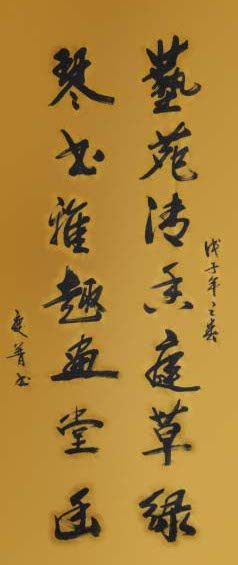 藝苑清香庭草綠
戊子年之
琴書雅趣畫堂幽
書